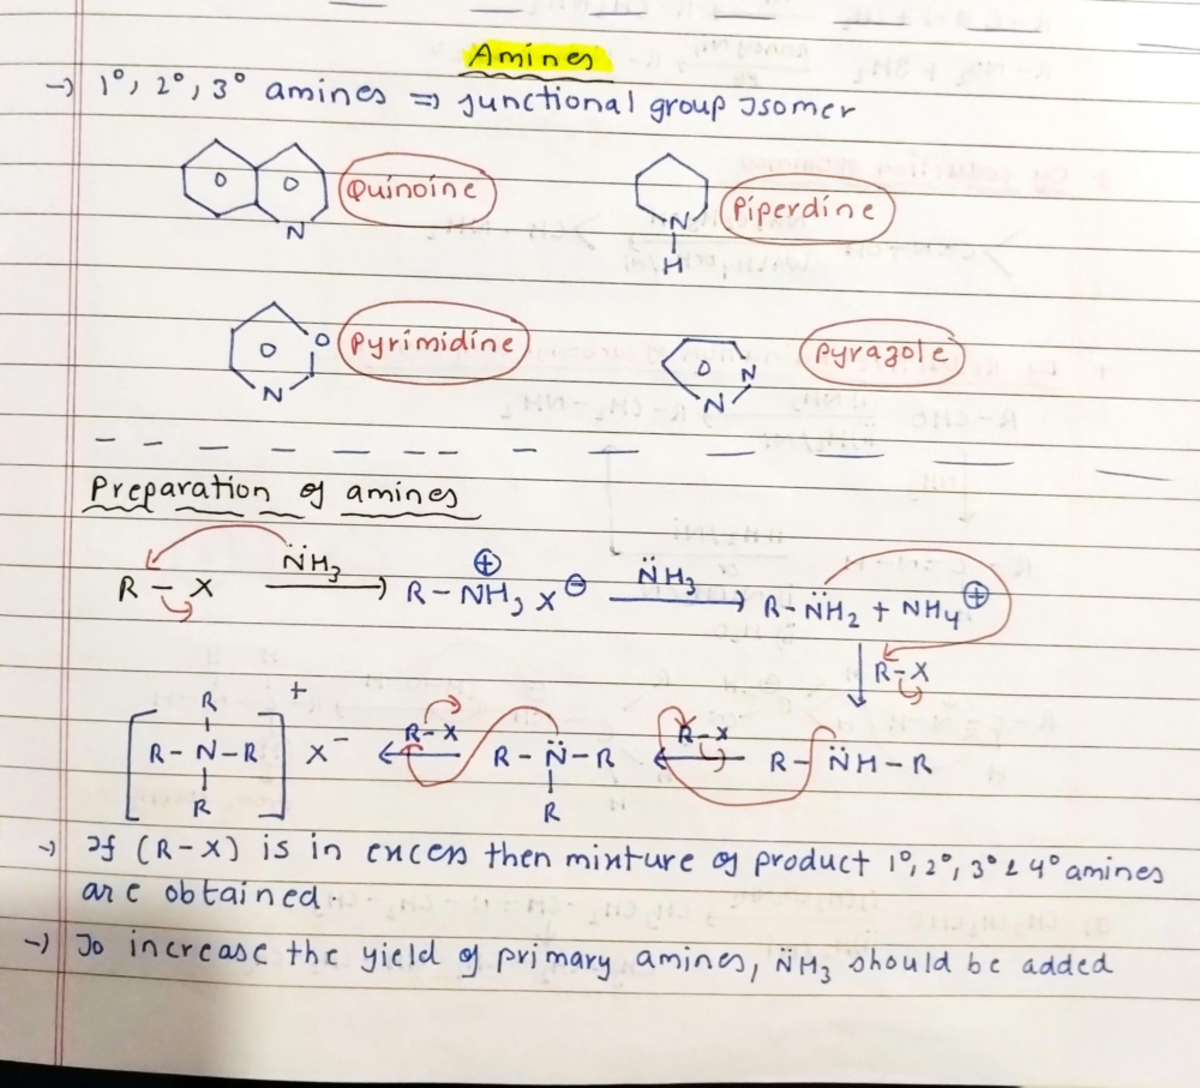 Amines
→ 1°, 2°, 3° amines ⇒ functional group Isomer
N
Quinoine
N
H
Piperdine
O
N
Pyrimidine
N
N
Pyrazole
Preparation of amines
R - X N̈H₃ → R - NH₃ ⊕ X ⊖ N̈H₃ → R - N̈H₂ + NH₄ ⊕
R - X
[R - N - R] + X⁻
R
R
R - X
R - N̈ - R
R
R - X
R - N̈H - R
→ If (R - X) is in excess then mixture of product 1°, 2°, 3° & 4° amines
are obtained
→ To increase the yield of primary amines, N̈H₃ should be added